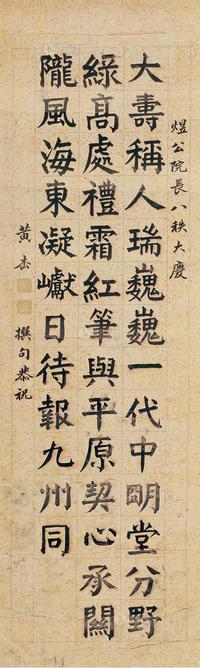 煜公院長八秩大慶
大壽稱人瑞巍巍一代中朙堂分野
綠高處禮霜紅筆與平原契心承關
隴風海東凝巘日待報九州同
黃杰
撰句恭祝